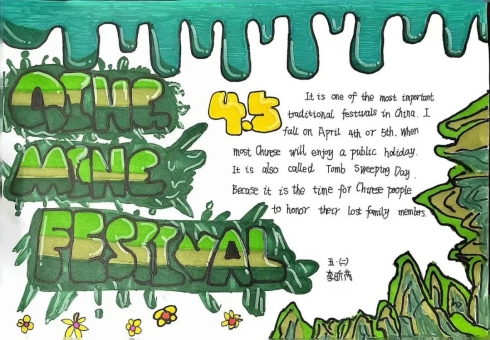 QING
MING
FESTIVAL
4.5
It is one of the most important
traditional festivals in China. I
fall on April 4th or 5th. When
most Chinese will enjoy a public holiday.
It is also called Tomb Sweeping Day.
Becase it is the time for Chinese people
to honor their lost family members.
五·(二)
李昕